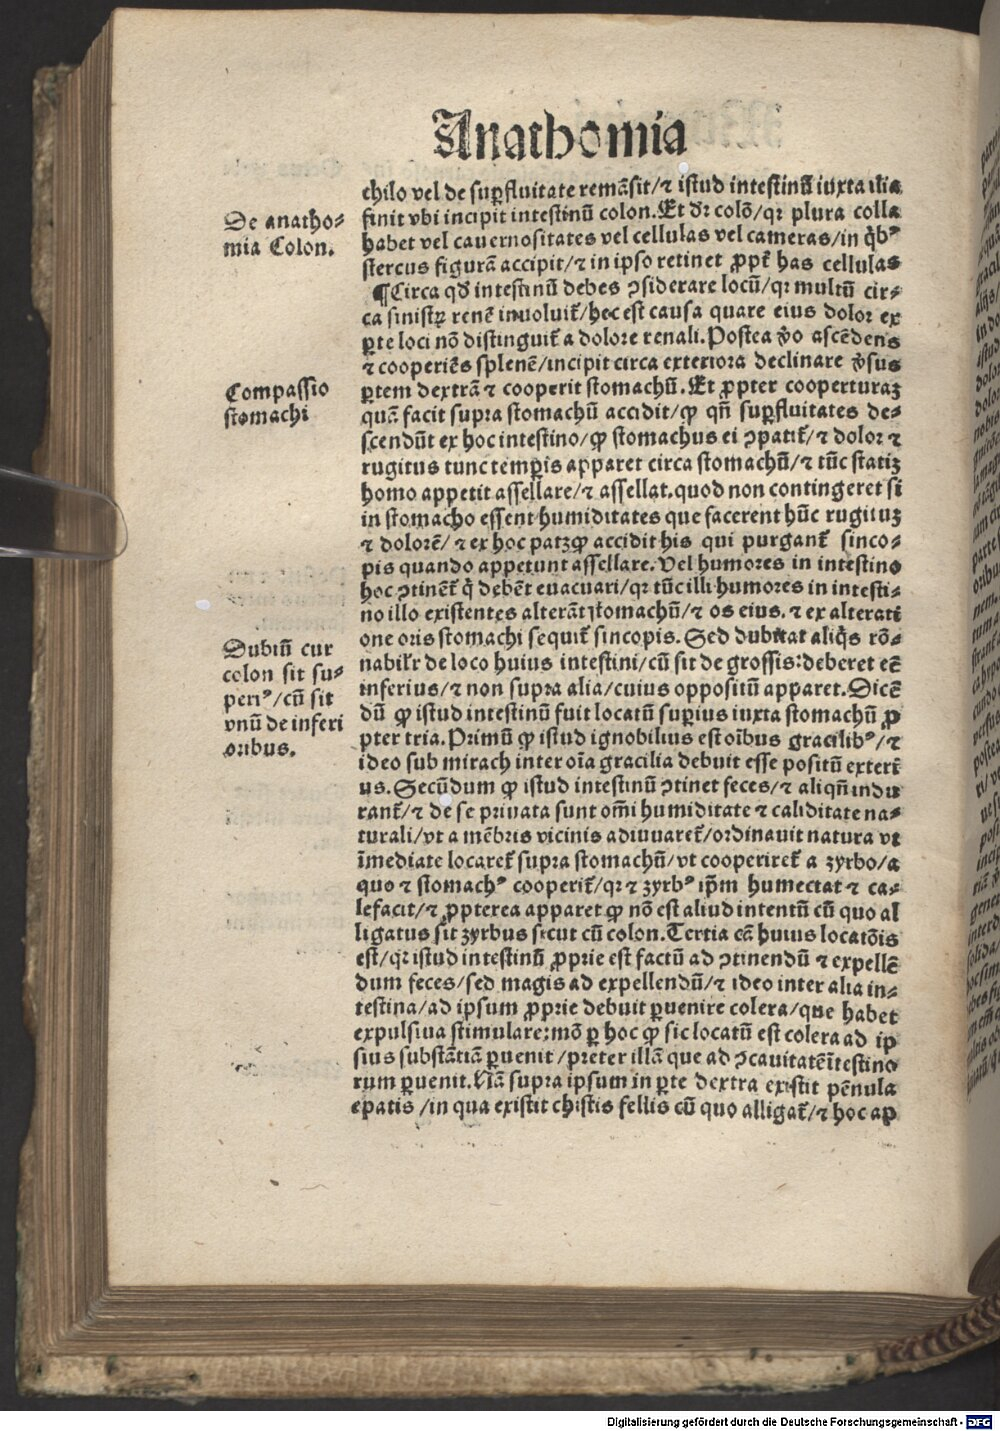 Anathomia
chilo vel de suꝑfluitate remãsit/⁊ istud intestinũ iuxta ilia
De anatho-
mia Colon.
finit vbi incipit intestinũ colon. Et dr̃ colõ/qꝛ plura colla
habet vel cauernositates vel cellulas vel cameras/in q̃bꝰ
stercus figurã accipit/⁊ in ipso retinet ꝓpt̃ has cellulas
¶Circa qd̃ intestinũ debes ꝯsiderare locũ/qꝛ multũ cir-
ca sinistrꝫ renẽ inuoluit̃/hec est causa quare eius dolor ex
ꝑte loci nõ distinguit̃ a dolore renali. Postea ṽo ascẽdens
⁊ cooperiẽs splenẽ/incipit circa exteriora declinare ṽsus
Compassio
stomachi
ꝑtem dextrã ⁊ cooperit stomachũ. Et ꝓpter cooperturaꝫ
quã facit supra stomachũ accidit/ꝙ qñ suꝑfluitates de-
scendũt ex hoc intestino/ꝙ stomachus ei ꝯpatit̃/⁊ dolor ⁊
rugitus tunc temꝑis apparet circa stomachũ/⁊ tũc statiꝫ
homo appetit assellare/⁊ assellat. quod non contingeret si
in stomacho essent humiditates que facerent hũc rugituꝫ
⁊ dolorẽ/⁊ ex hoc patꝫ ꝙ accidit his qui purgant̃ sinco-
pis quando appetunt assellare. Vel humores in intestino
hoc ꝯtinẽt̃ q̃ debẽt euacuari/qꝛ tũc illi humores in intesti-
no illo existentes alterãt stomachũ/⁊ os eius. ⁊ ex alterati
one oris stomachi sequit̃ sincopis. Sed dubitat aliq̃s rõ-
Dubiũ cur
colon sit su-
periꝰ/cũ sit
vnũ de inferi
oribus.
nabilr̃ de loco huius intestini/cũ sit de grossis: deberet eẽ
inferius/⁊ non supra alia/cuius oppositũ apparet. Dicẽ
dũ ꝙ istud intestinũ fuit locatũ suꝑius iuxta stomachũ ꝓ
pter tria. Primũ ꝙ istud ignobilius est oĩbus gracilibꝰ/⁊
ideo sub mirach inter oĩa gracilia debuit esse positũ exteri
us. Secũdum ꝙ istud intestinũ ꝯtinet feces/⁊ aliqñ indu
rant̃/⁊ de se priuata sunt om̃i humiditate ⁊ caliditate na-
turali/vt a mẽbris vicinis adiuuaret̃/ordinauit natura vt
ĩmediate locaret̃ supra stomachũ/vt cooperiret̃ a zyrbo/a
quo ⁊ stomachꝰ cooperit̃/qꝛ ⁊ zyrbꝰ ip̃m humectat ⁊ ca-
lefacit/⁊ ꝓpterea apparet ꝙ nõ est aliud intentũ cũ quo al
ligatus sit zyrbus sicut cũ colon. Tertia cã huius locatõis
est/qꝛ istud intestinũ ꝓprie est factũ ad ꝯtinendũ ⁊ expellẽ
dum feces/sed magis ad expellendũ/⁊ ideo inter alia in-
testina/ad ipsum ꝓprie debuit ꝑuenire colera/que habet
expulsiua stimulare: mõ ꝑ hoc ꝙ sic locatũ est colera ad ip
sius substãtiã ꝑuenit/preter illã que ad ꝯcauitatẽ ĩtestino
rum ꝑuenit. Nã supra ipsum in ꝑte dextra existit pẽnula
epatis/in qua existit chistis fellis cũ quo alligat̃/⁊ hoc ap
Digitalisierung gefördert durch die Deutsche Forschungsgemeinschaft - DFG